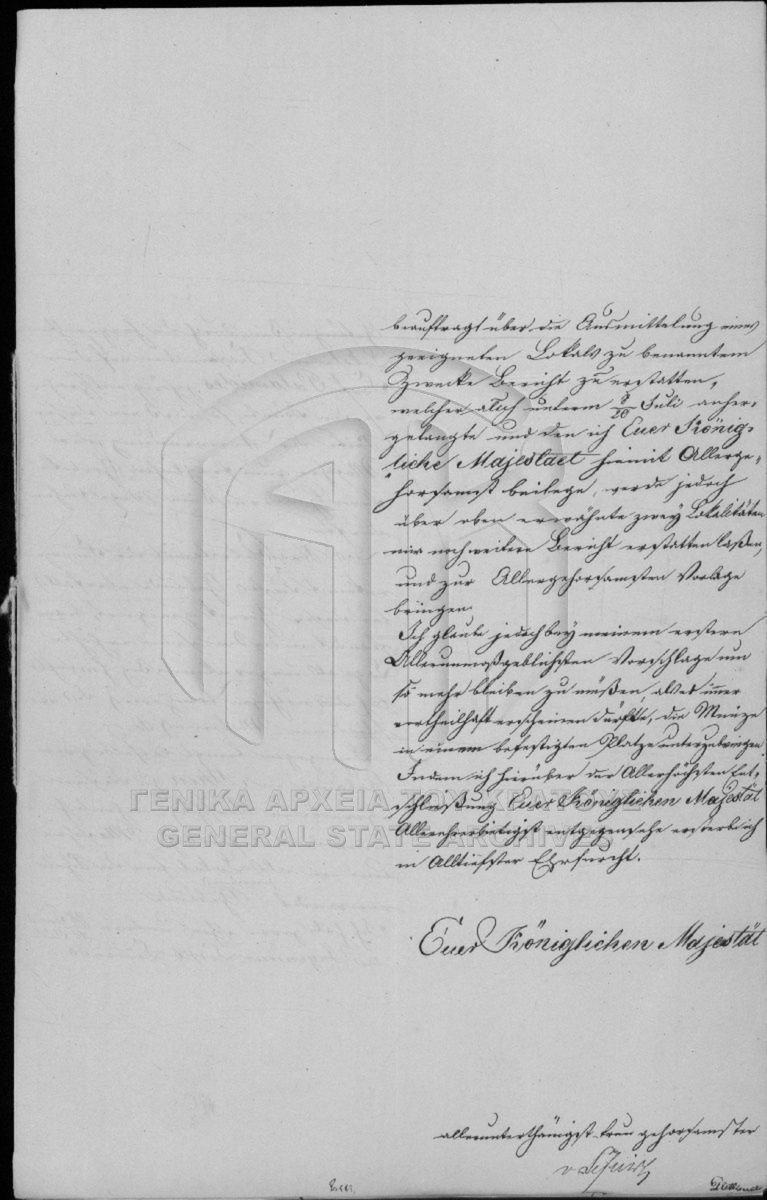 beauftragt über die Ausmittelung eines
geeigneten Lokals zu benanntem
Zwecke Bericht zu erstatten,
welcher auch unterm 8/20 Juli anher-
gelangte und den ich Euer König-
liche Majestaet hiemit Allerge-
horsamst beilege, werde jedoch
über oben erwähnte zwey Lokalitäten
mir noch weitern Bericht erstatten laßen,
und zur Allergehorsamsten Vorlage
bringen.
Ich glaube jedoch bey meinem erstern
Allerunmaßgeblichsten Vorschlage um
so mehr bleiben zu müßen, als es immer
vortheilhaft erscheinen dürfte, die Münze
in einem befestigten Platze unterzubringen.
Indem ich hierüber der Allerhöchsten Ent-
schließung Euer Königlichen Majestät
Allerehrerbietigst entgegensehe ersterbe ich
in Alltiefster Ehrfurcht.
Euer Königlichen Majestät
allerunterthänigst treu gehorsamster
ΓΕΝΙΚΑ ΑΡΧΕΙΑ ΤΟΥ ΚΡΑΤΟΥΣ
GENERAL STATE ARCHIVES